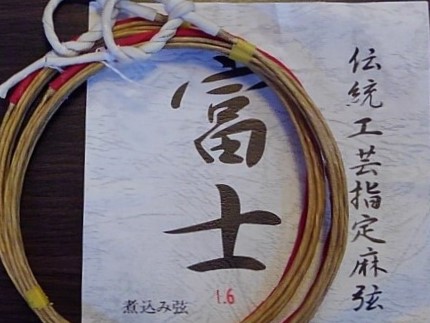 伝統工芸指定麻弦
富士
煮込み弦
1.6